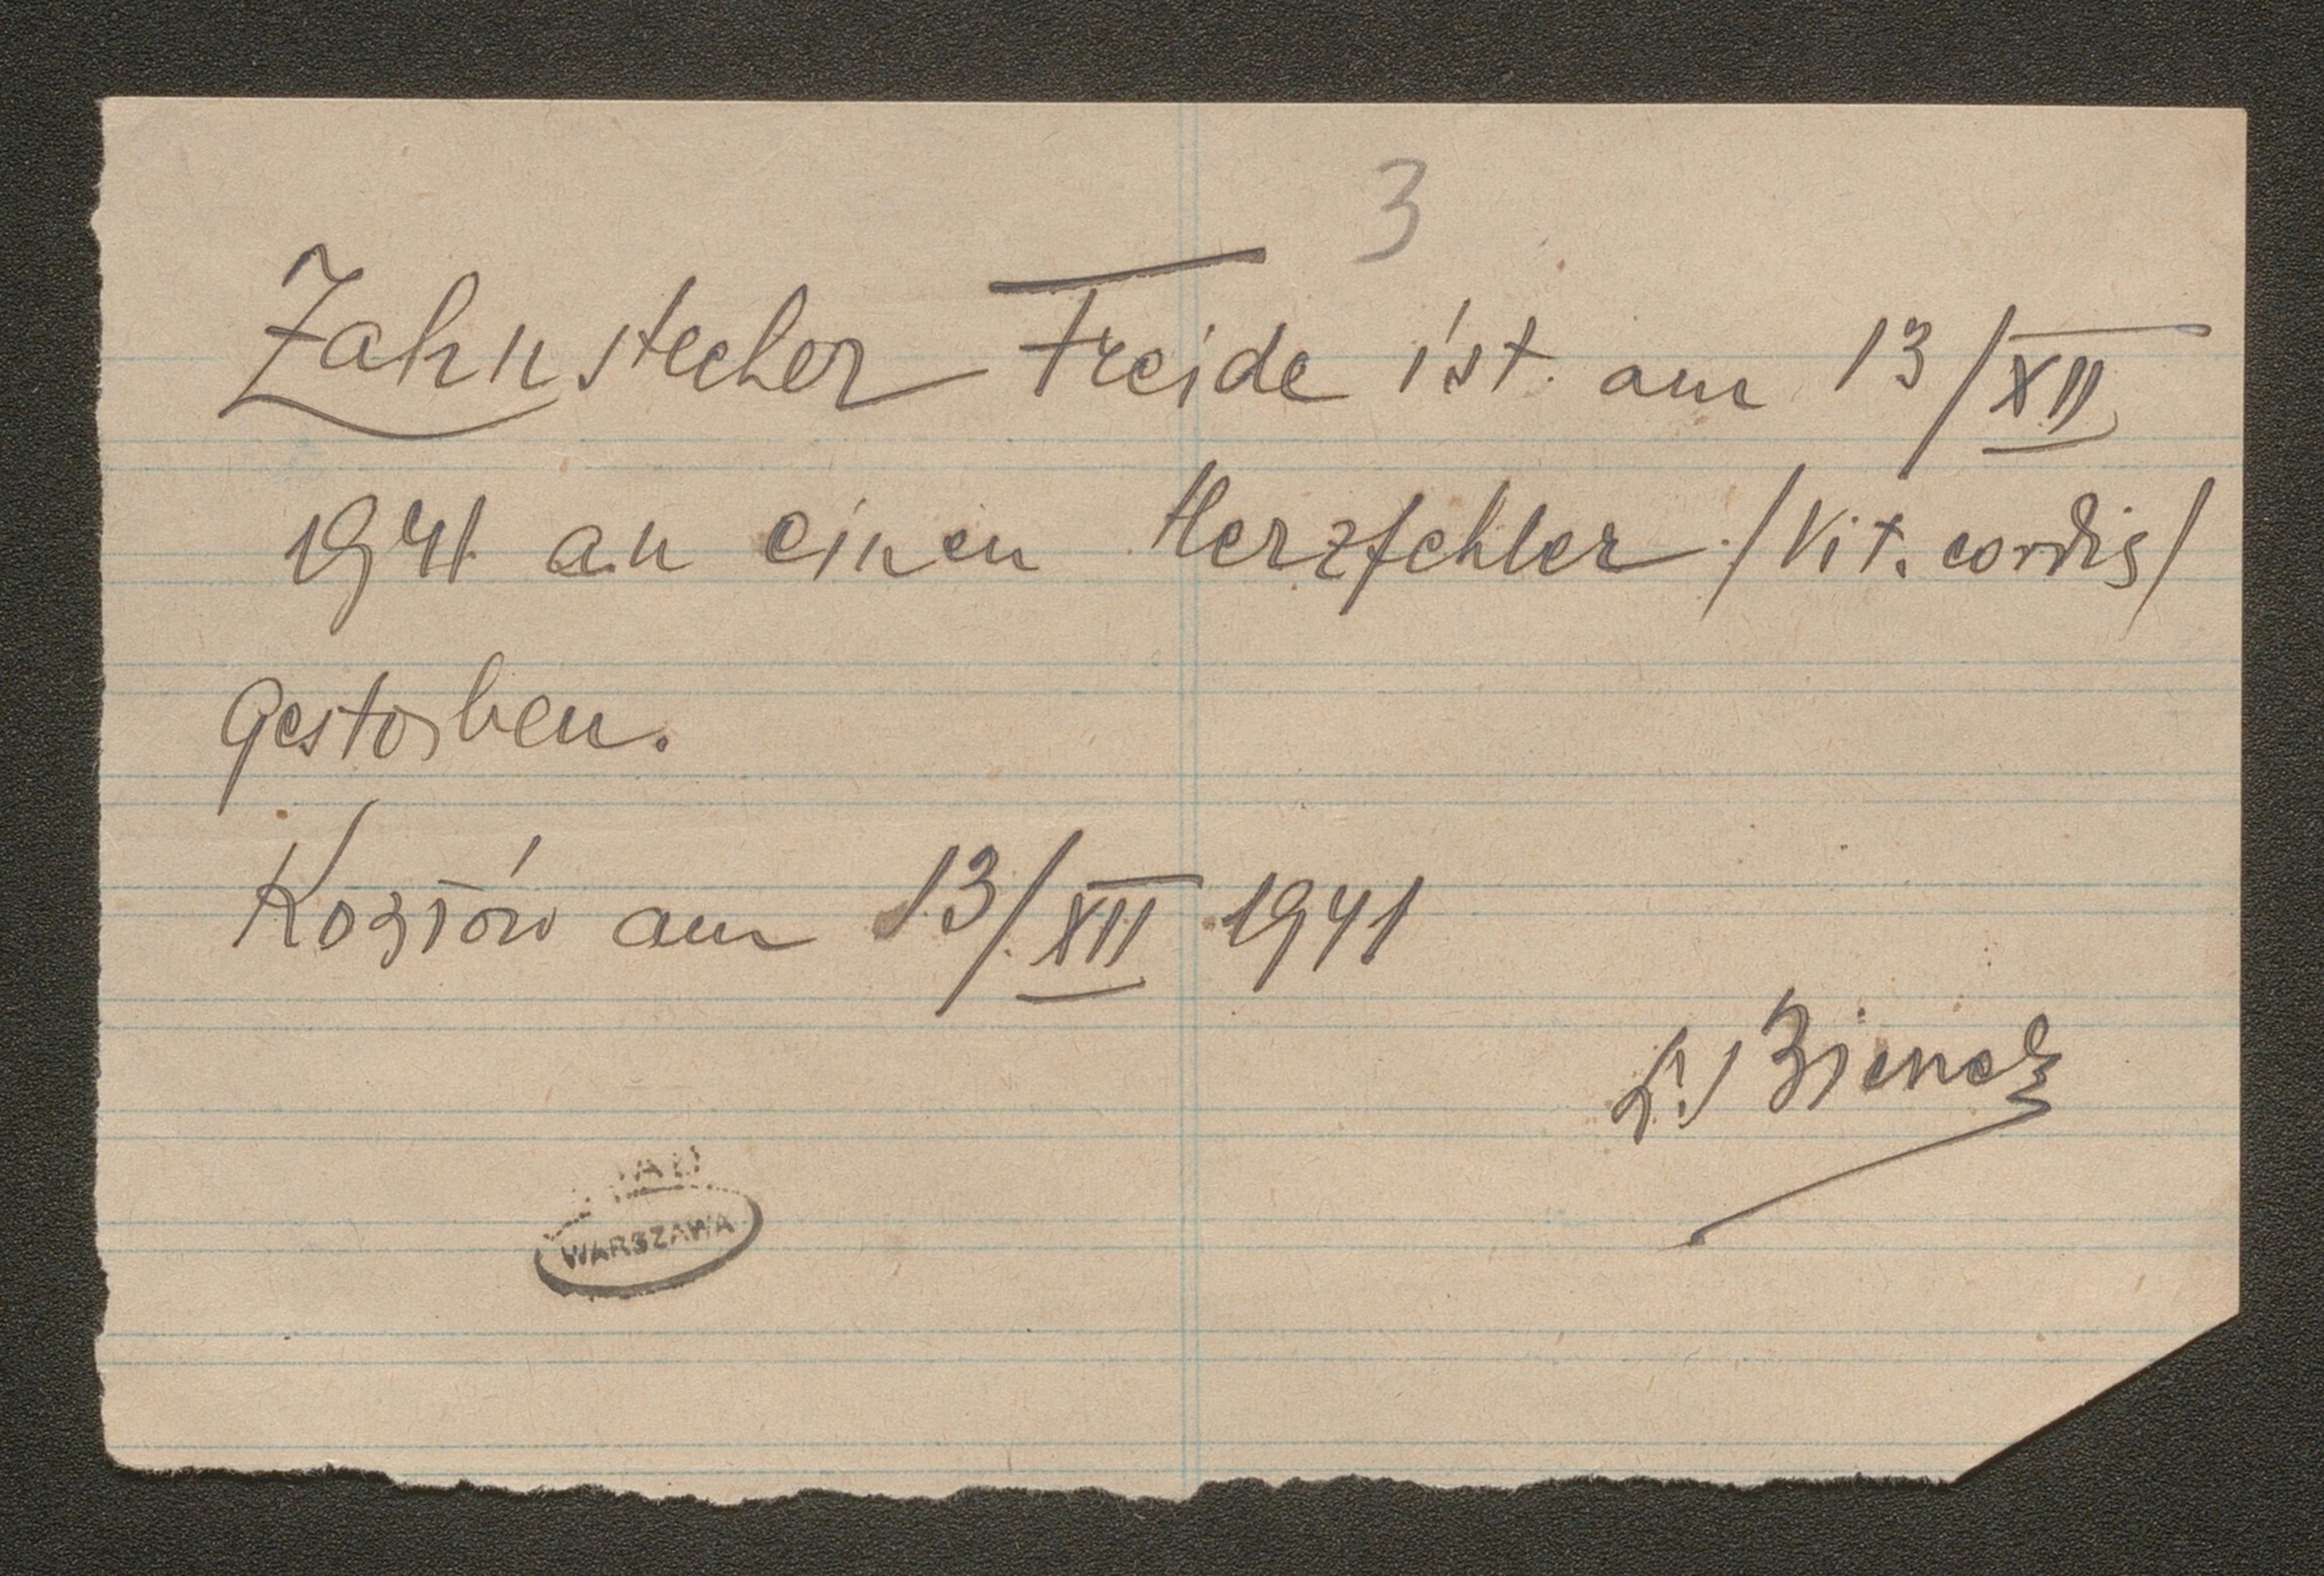 3
Zahnstecher Freide ist am 13/XII
1941 an einen Herzfehler /Vit. cordis/
gestorben.
Kozłów am 13/XII 1941
WARSZAWA